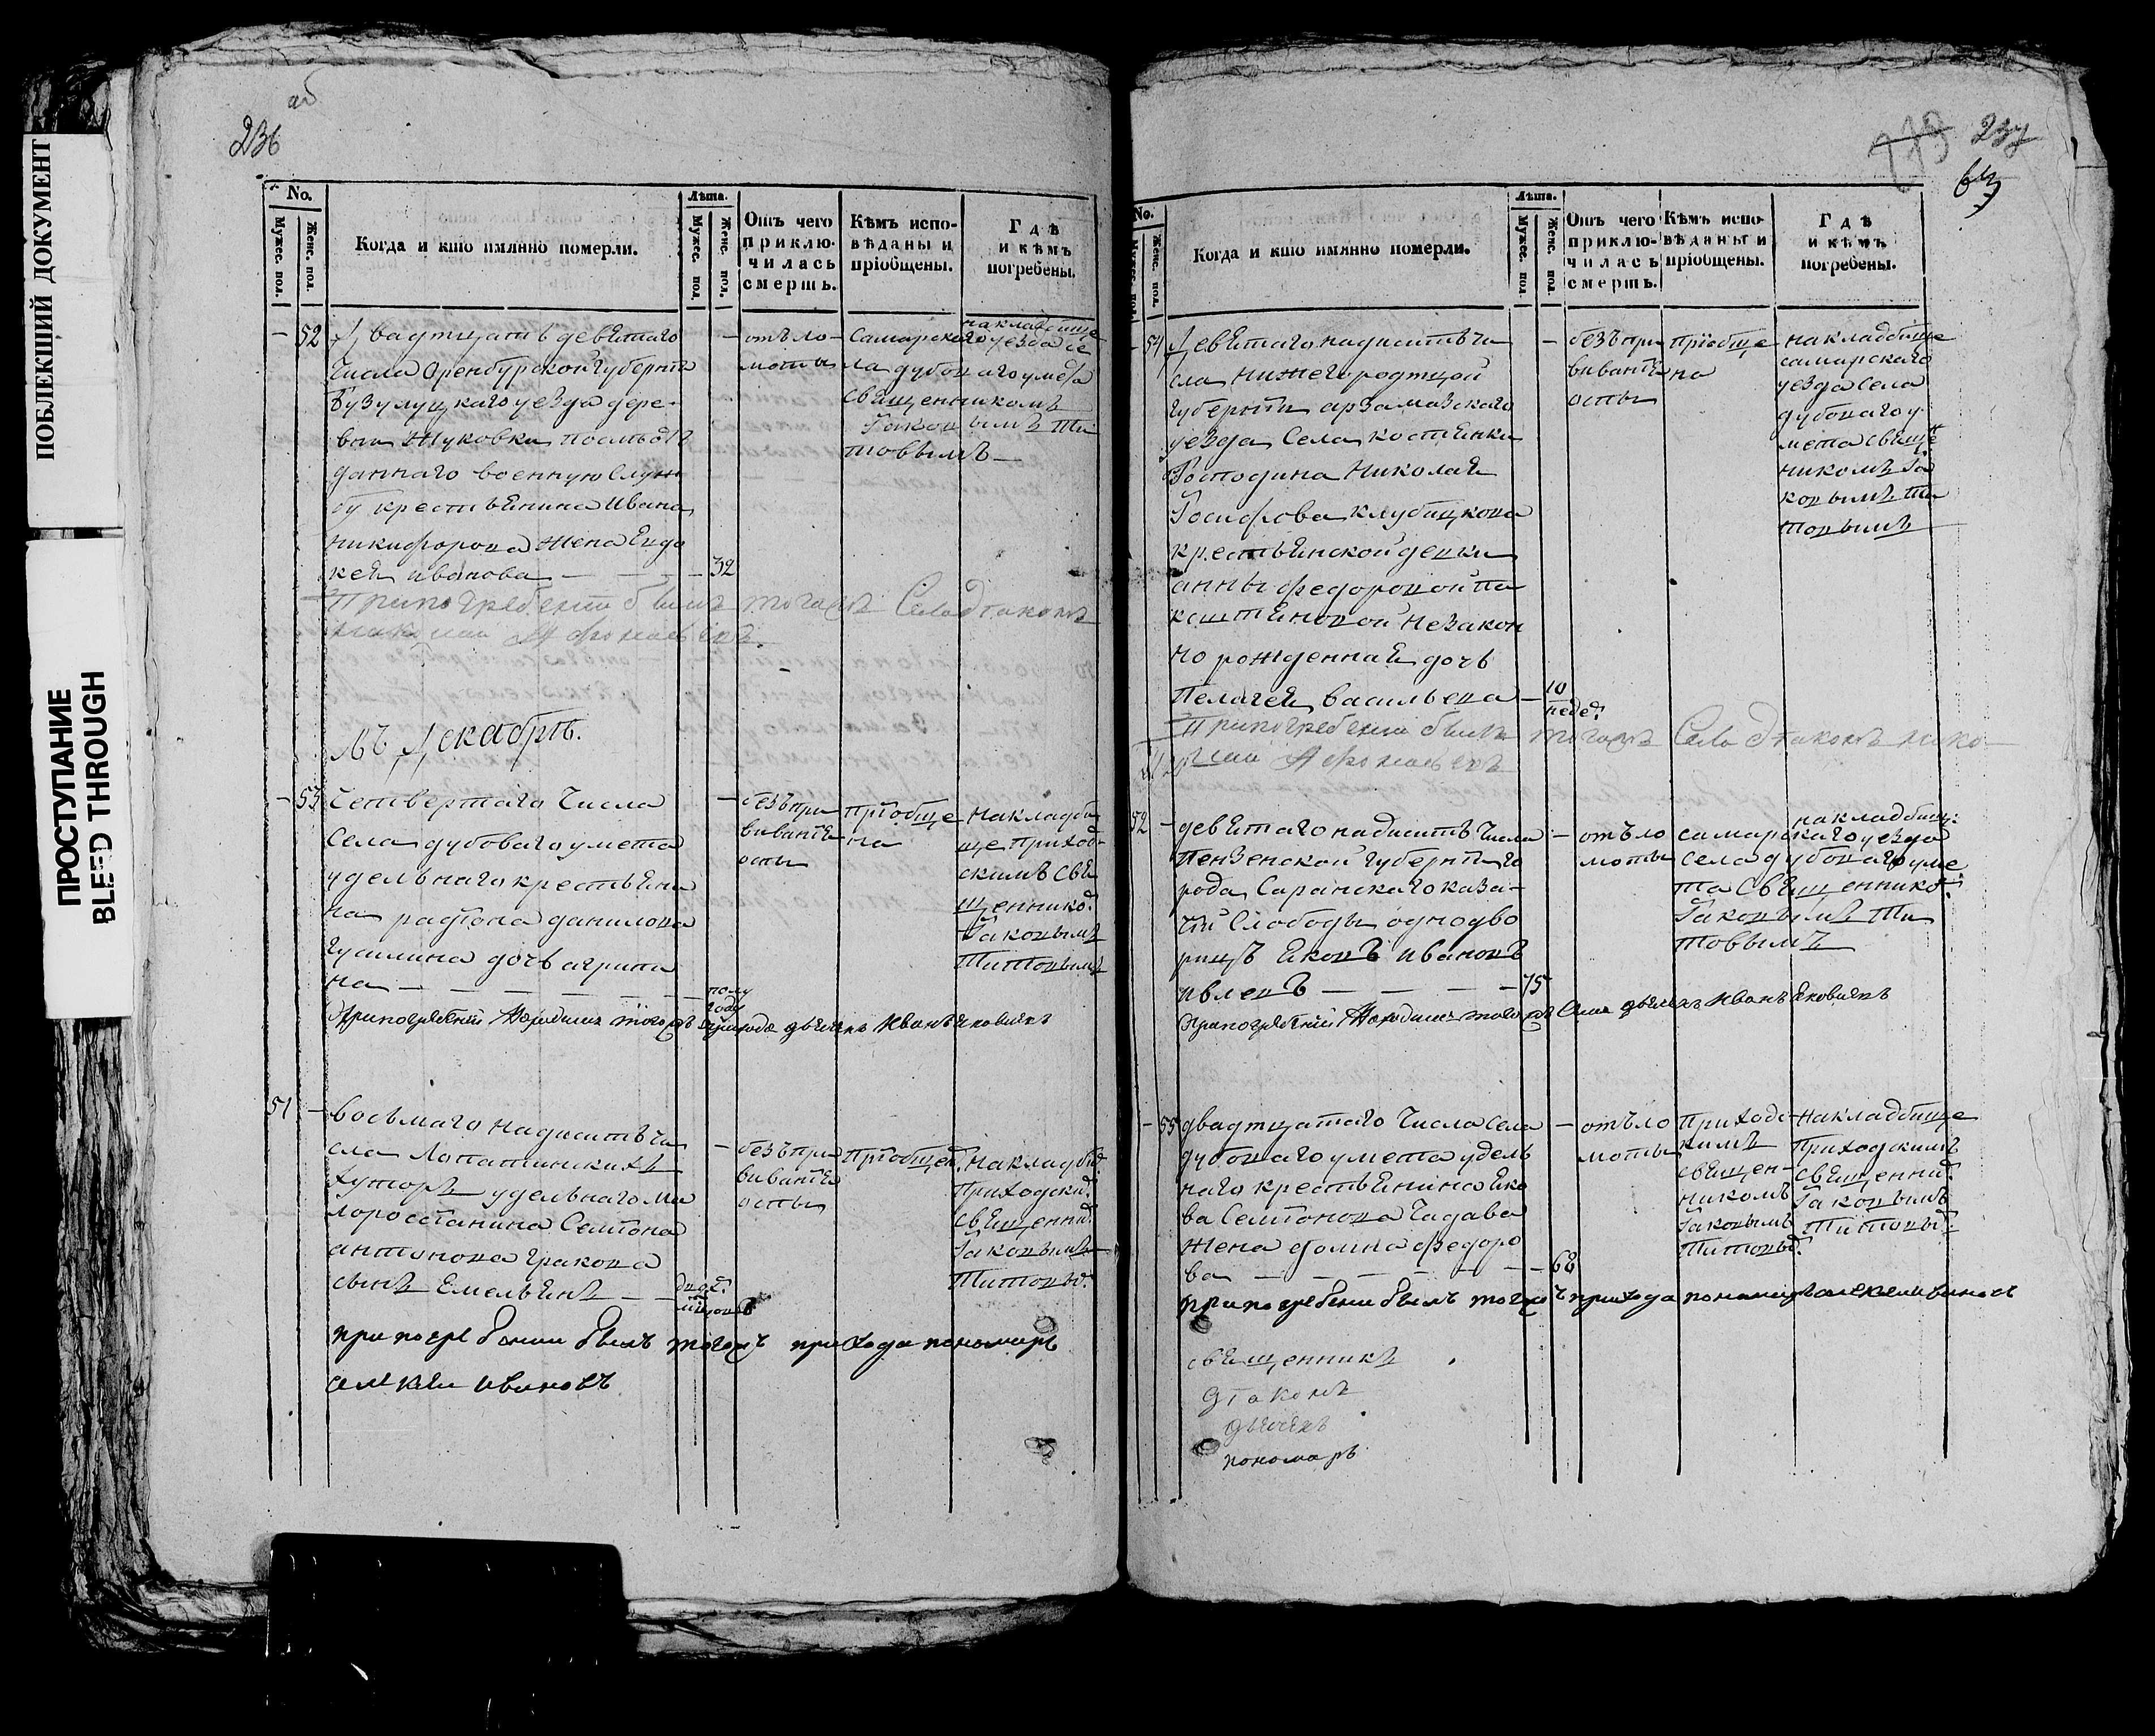 ПОБЛЕКШИЙ ДОКУМЕНТ
ПРОСТУПАНИЕ
BLEED THROUGH
об
236
No.
Мужес. пол.
Женс. пол.
Когда и кто имянно померли.
Лѣта.
Мужес. пол.
Женс. пол.
Отъ чего
приклю-
чилась
смерть.
Кѣмъ испо-
вѣданы и
пріобщены.
Гдѣ
и кѣмъ
погребены.
52
Двадцать девятаго
числа Оренбурской губерніи
Бузулуцкаго уезда дере-
вни Жуковки
даннаго военную служ
бу крестьянина Ивана
Никифорова жена Евдо
кея Иванова — 32
отъ ло
моты
Самарскаго уезда се
ла дубоваго умета
священникомъ
Іаковымъ Ти
товымъ
на кладбище
При погребеніи былъ тогожъ Села діаконъ
Афонасьевъ
Въ Декабрѣ.
53
Четвертаго числа
Села дубоваго умета
удельнаго крестьяни
на радіона данилова
дочь агрипи
на — полу
году
безъ при
вивантя
оспы
пріобще
на
на кладби
ще приход
скимъ свя
щенником.
Іаковымъ
Титовымъ
При погребеніи находился тогожъ прихода дьячекъ Иванъ Яковлевъ
51
восьмаго надцать чи
сла Лопатинскихъ
хуторъ удельнаго ма
лоросіянина Семіона
антонова гракова
сынъ Емельянъ —
безъ при
вивантя
оспы
пріобщен.
на кладби.
приходски.
священни.
Іаковымъ
Титовы.
при погребении былъ тогожъ прихода пономарь
алексей ивановъ
237
63
No.
Женс. пол.
Когда и кто имянно померли.
Лѣта.
Мужес. пол
Женс. пол.
Отъ чего
приклю-
чилась
смерть.
Кѣмъ испо-
вѣданы и
пріобщены.
Гдѣ
и кѣмъ
погребены.
54
Девятаго надцать чи
сла нижегородцкой
губерніи арзамазскаго
уезда Села костянки
Господина Николая
Іосифова
крестьянской девки
анны федоровой па
незакон
но рожденная дочь
Пелагея Васильева — 10
недел.
безъ при
вивантя
оспы
пріобще
на
на кладбище
самарскаго
уезда села
дубоваго у
мета священ
никомъ Іа
ковымъ Ти
товымъ
При погребеніи былъ тогожъ Села діаконъ нико
лай Афонасьевъ
52
девятаго надцать числа
Пензенской губерніи го
рода Саранска каза-
чій Слободы однодво
рицъ Яковъ Ивановъ
ивлевъ — 75
отъ ло
моты
самарскаго уезда
села дубоваго уме
та священнико.
Іаковымъ Ти
товымъ
на кладбищ.
При погребеніи находился тогожъ Села дьячекъ Иванъ Яковлевъ
55
двадцатаго числа Села
дубоваго умета удель
наго крестьянина Яко
ва Семіонова
жена федоро
ва — 68
отъ ло
моты
приходс
кимъ
священ-
никомъ
Іаковымъ
Титовы.
на кладбище
приходскимъ
священни.
Іаковымъ
Титовы.
при погребении былъ тогожъ прихода пономарь алексей ивановъ
священникъ
діаконъ
дьячекъ
пономарь